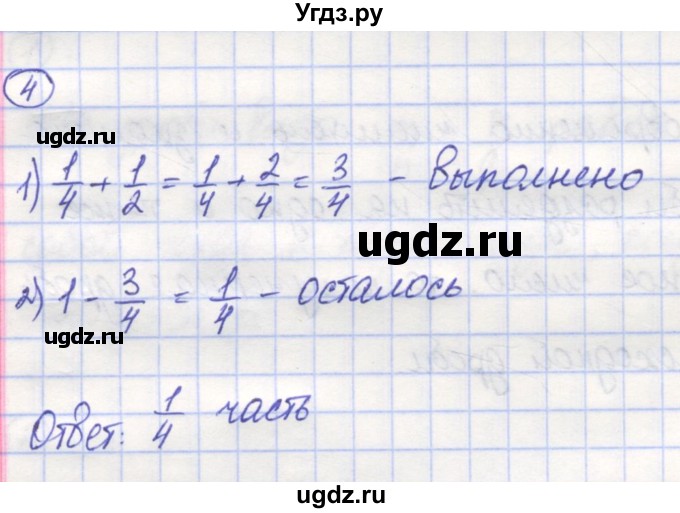 Угдз.ру
4
ugdz.ru
1) 1/4 + 1/2 = 1/4 + 2/4 = 3/4 - Выполнено
ugdz.ru
2) 1 - 3/4 = 1/4 - осталось
ugdz.ru
Ответ: 1/4 часть
ugdz.ru
ugdz.ru